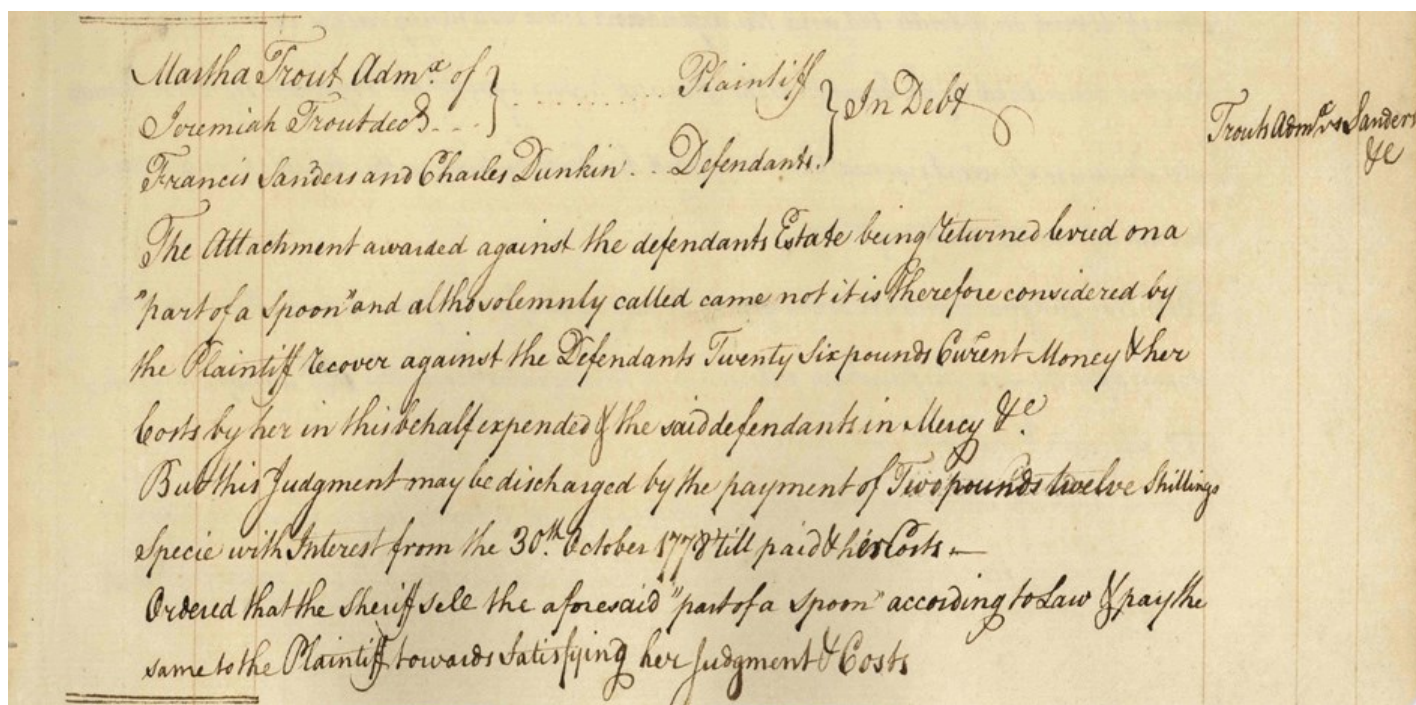 Martha Trout Admx. of } .......... Plaintiff } In Debt
Jeremiah Trout decd. ... }
Francis Sanders and Charles Dunkin .. Defendants.
Trouts Admx. vs Sanders
&c
The Attachment awarded against the defendants Estate being returned levied on a
"part of a spoon" and altho solemnly called came not it is therefore considered by
the Plaintiff recover against the Defendants Twenty Six pounds Curent Money & her
Costs by her in this behalf expended & the said defendants in Mercy &c.
But this Judgment may be discharged by the payment of Two pounds twelve Shillings
Specie with Interest from the 30th. October 1778 till paid & her Costs —
Ordered that the Sheriff sell the aforesaid "part of a spoon" according to Law & pay the
same to the Plaintiff towards Satisfying her Judgment & Costs